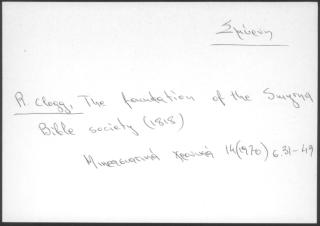 Σμύρνη
R. Clogg, The foundation of the Smyrna
Bible society (1818)
Μικρασιατικά Χρονικά 14(1970) σ. 31-49